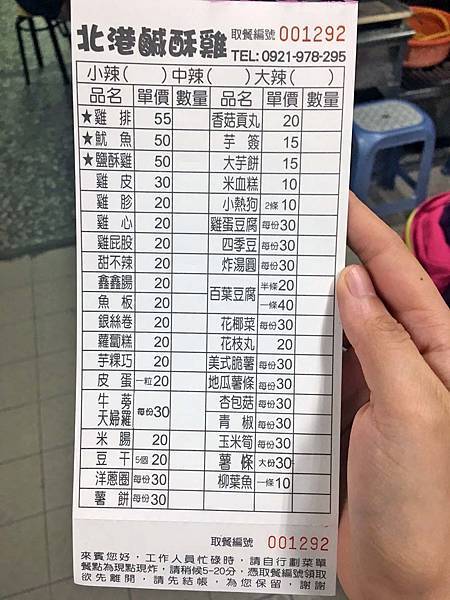 北港鹹酥雞 取餐編號 001292
TEL: 0921-978-295
小辣( ) 中辣( ) 大辣( )
品名 單價 數量 品名 單價 數量
★雞排 55 香菇貢丸 20
★魷魚 50 芋簽 15
★鹽酥雞 50 大芋餅 15
雞皮 30 米血糕 10
雞胗 20 小熱狗 2條10
雞心 20 雞蛋豆腐 每份30
雞屁股 20 四季豆 每份30
甜不辣 20 炸湯圓 每份30
鑫鑫腸 20 百葉豆腐 半條20
魚板 20 一條40
銀絲卷 20 花椰菜 每份30
蘿蔔糕 20 花枝丸 20
芋粿巧 20 美式脆薯 每份30
皮蛋 一粒20 地瓜薯條 每份30
牛蒡天婦羅 每份30 杏包菇 每份30
青椒 每份30
米腸 20 玉米筍 每份30
豆干 5個20 薯條 大份30
洋蔥圈 每份30 柳葉魚 一條10
薯餅 每份30
取餐編號 001292
來賓您好，工作人員忙碌時，請自行劃菜單
餐點為現點現炸，請稍候5-20分，憑取餐編號領取
欲先離開，請先結帳，為您保留，謝謝